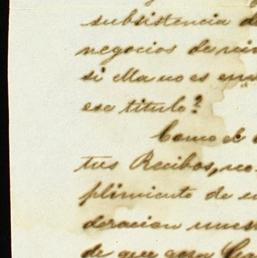 subsistencia d
negocios de
si ella no es
ese titulo?
Como el
tus Recibos, no
plimiento de
deracion
de que esa